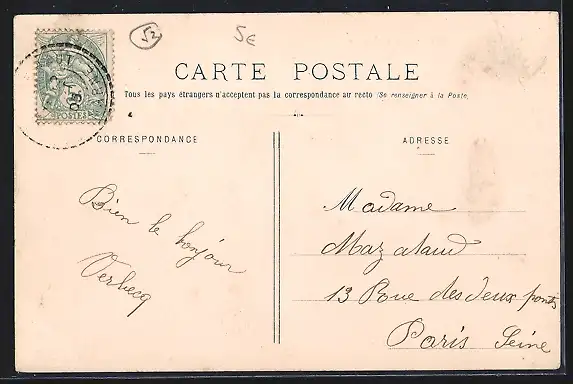 52
5€
CARTE POSTALE
Tous les pays étrangers n'acceptent pas la correspondance au recto (Se renseigner à la Poste)
CORRESPONDANCE
ADRESSE
POSTES
Bien le bonjour
Verbecq
Madame
Mazalaud
13 Rue des deux ponts
Paris Seine